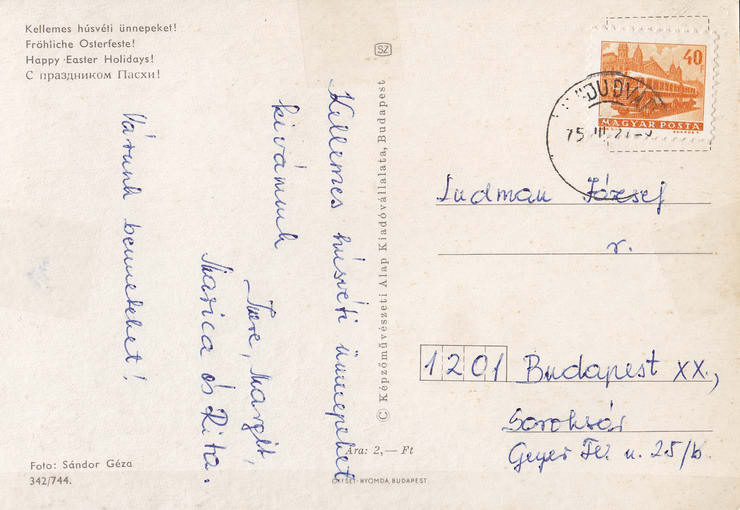 Kellemes húsvéti ünnepeket!
Fröhliche Osterfeste!
Happy Easter Holidays!
С праздником Пасхи!
Kellemes húsvéti ünnepeket
kivánunk
Imre, Margit,
Marica és Rita.
Várunk benneteket!
Foto: Sándor Géza
342/744.
SZ
© Képzőművészeti Alap Kiadóvállalata, Budapest
Ára: 2,— Ft
OFFSET-NYOMDA, BUDAPEST
40
MAGYAR POSTA
75 III
Ludman József
r.
1201 Budapest XX.,
Soroksár
u. 25/b